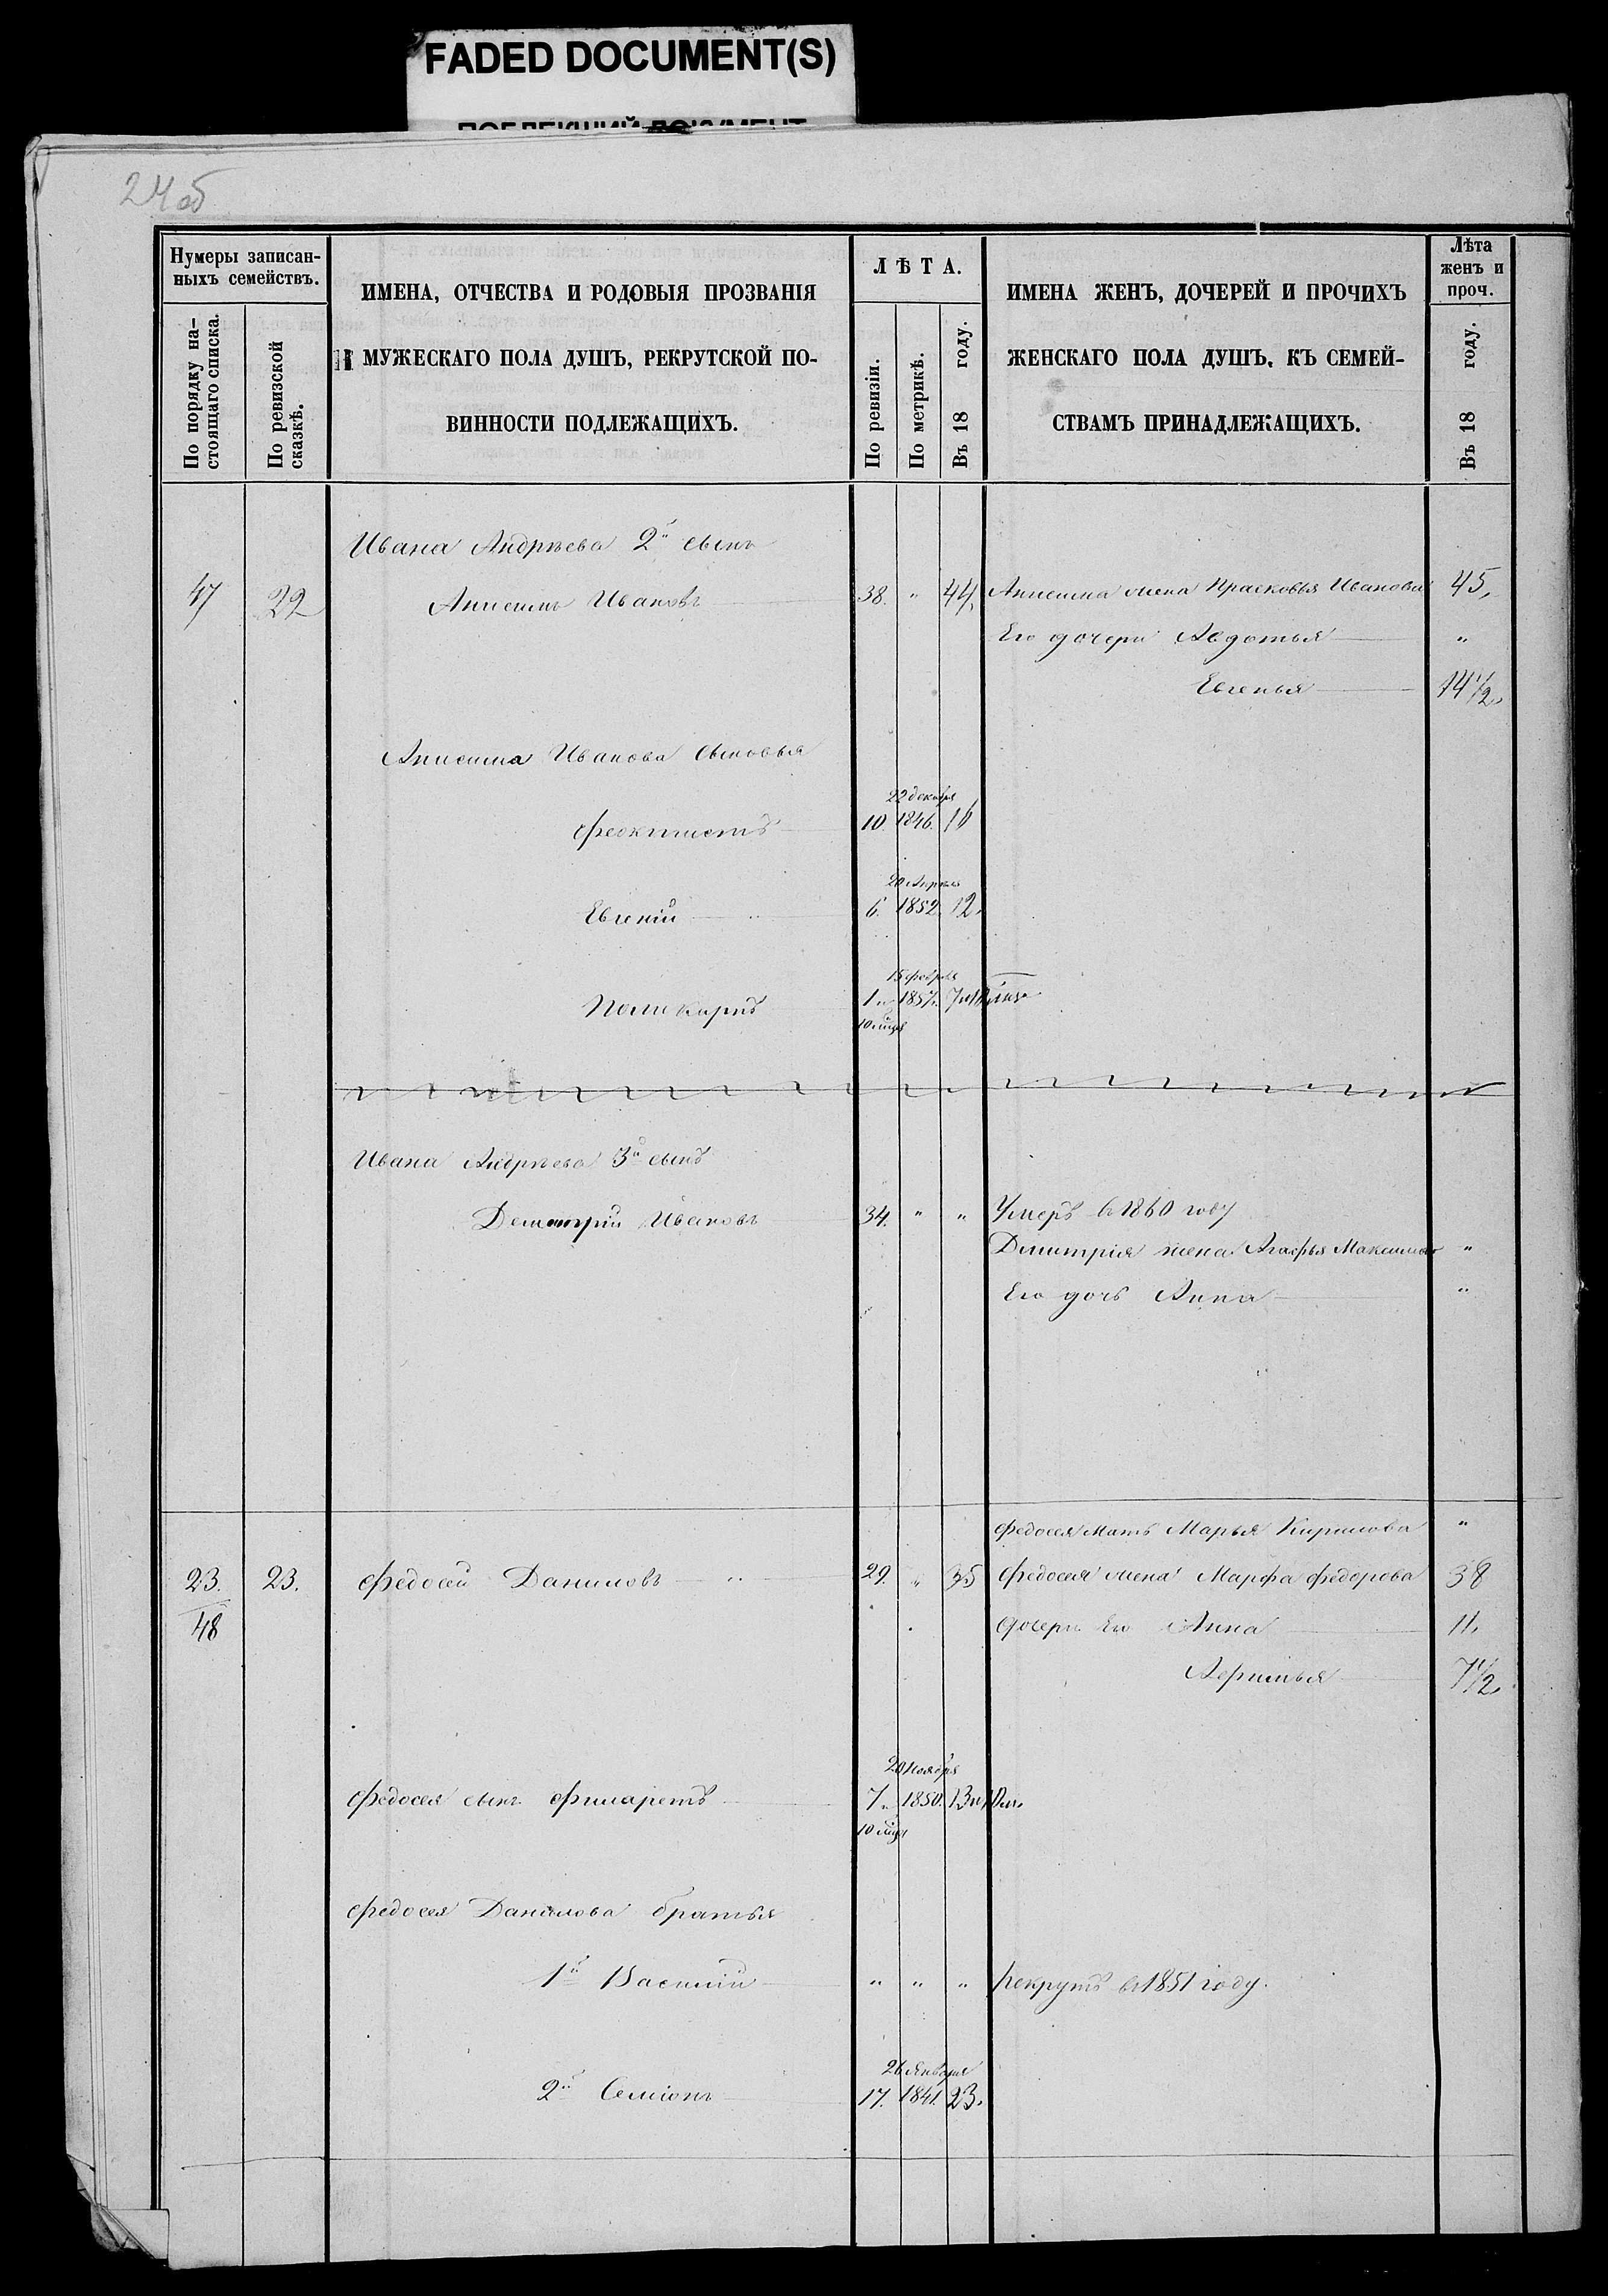 FADED DOCUMENT(S)
24об
Нумеры записан-
ныхъ семействъ.
По порядку на-
стоящаго списка.
По ревизской
сказкѣ.
ИМЕНА, ОТЧЕСТВА И РОДОВЫЯ ПРОЗВАНІЯ
МУЖЕСКАГО ПОЛА ДУШЪ, РЕКРУТСКОЙ ПО-
ВИННОСТИ ПОДЛЕЖАЩИХЪ.
ЛѢТА.
По ревизіи.
По метрикѣ.
Въ 18 году.
ИМЕНА ЖЕНЪ, ДОЧЕРЕЙ И ПРОЧИХЪ
ЖЕНСКАГО ПОЛА ДУШЪ, КЪ СЕМЕЙ-
СТВАМЪ ПРИНАДЛЕЖАЩИХЪ.
Лѣта
женъ и
проч.
Въ 18 году.
Ивана Андрѣева 2й сынъ
47 22 Анисимъ Ивановъ 38. " 44, Анисима жена Прасковья Иванова 45,
Его дочери Авдотья "
Евгенья 14 1/2,
Анисима Иванова Сыновья
22 декабря
Феоктистъ 10. 1846. 16
20 Апреля
Евгеній 6. 1852. 12.
15 февраля
Поликарпъ 1 и 1857.
10 мцв
Ивана Андрѣева 3й сынъ
Демитрій Ивановъ 34. " " Умеръ в 1860 году
Дмитрія жена Агафья Максимова "
Его дочь Анна "
Федосея Мать Марья Кирилова "
23. 23. Федосей Даниловъ 29. " 35 Федосея жена Марфа Федорова 38
48 Дочери Его Анна 11,
7 1/2,
20 Ноября
Федосея сынъ Филаретъ 7 и 1850. 13 и 10 м.
10 мцв
Федосея Данилова братья
1й Василій " " " рекрутъ в 1851 году.
26 Января
2й Семіонъ 17. 1841. 23.